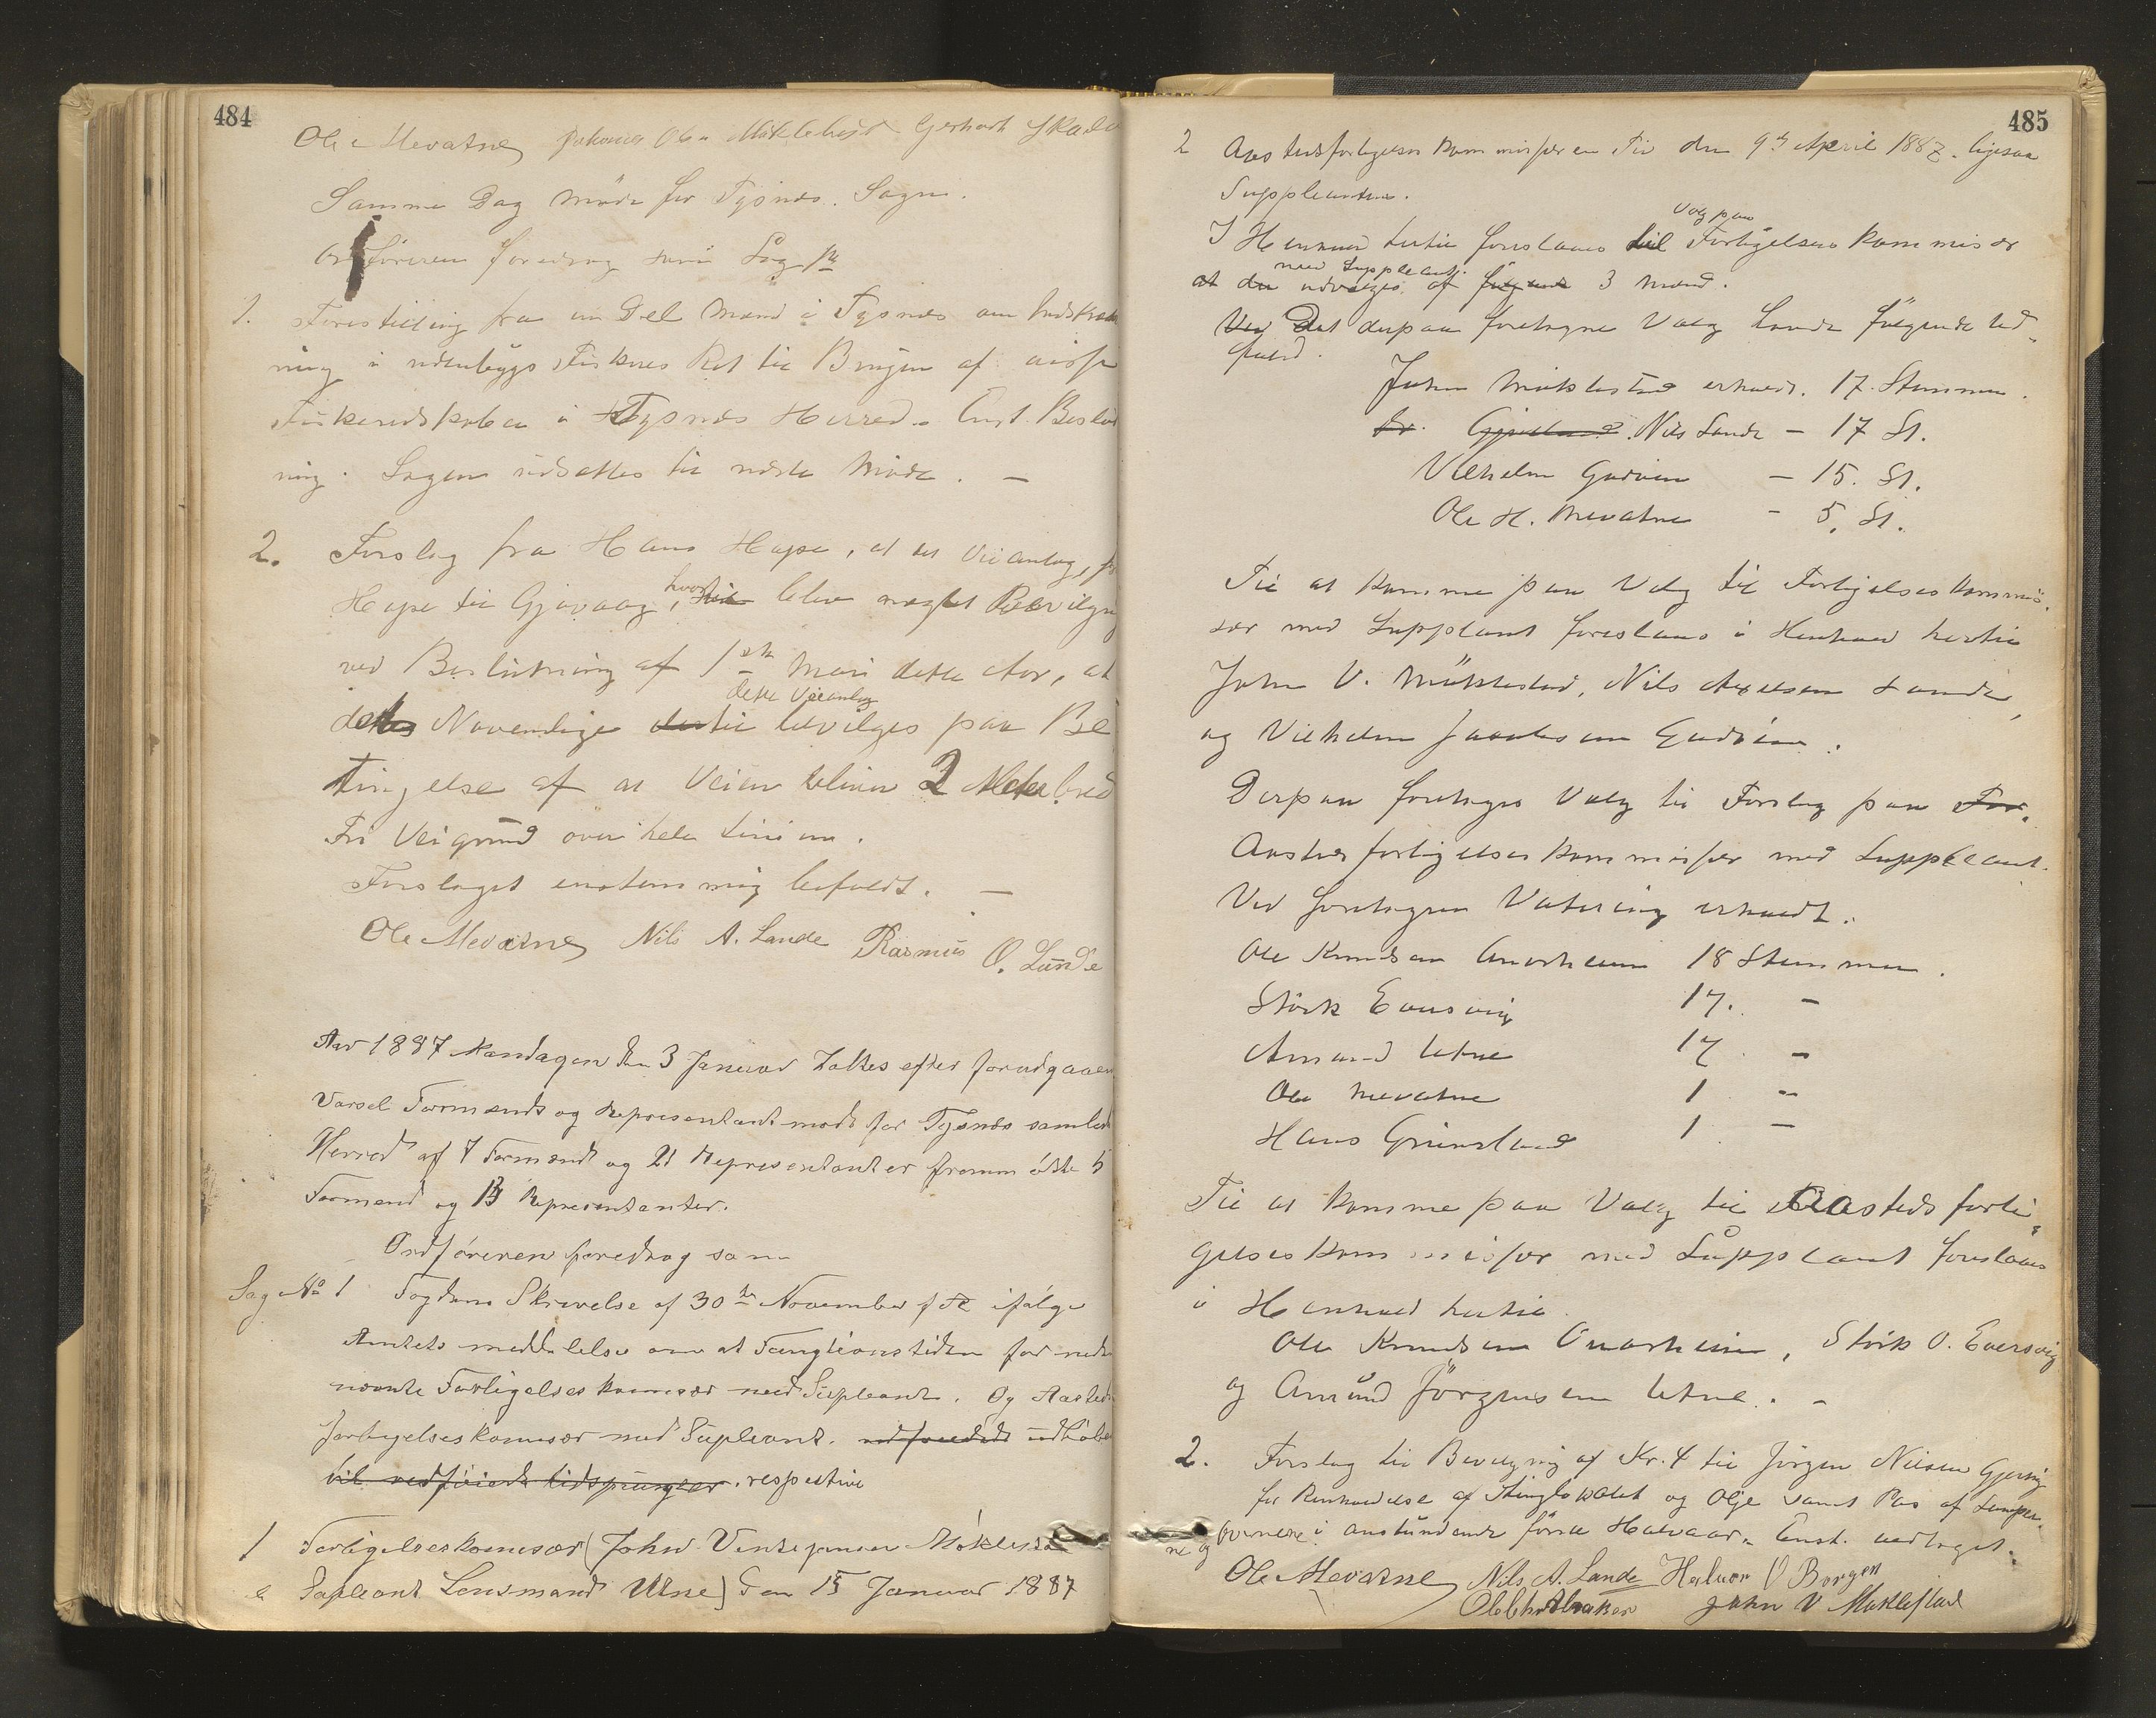 484
Ole Mevatne Johannes Ols. Møklebust Gerhart Skadv
Samme Dag Møde for Tysnes Sogn.
Ordføreren foredrog som Sag No
1. Forestilling fra en Del Mænd i Tysnes om Indskrænk
ning i udenbygs Fiskeres Ret til Brugen af visse
Fiskeredskaber i Tysnes Herred. Enst. Beslut
ning. Sagen udsættes til næste Møde. —
2. Forslag fra Hans Hope, at et Veianlæg, fra
Hope til Gjøvaag, hvortil blev nægtet Bevilgn
ved Beslutning af 1ste Mai dette Aar, at
dette Veianlæg
det Nøvendige dertil bevilges paa Be
tingelse af at Veien bliver 2 Meter bred
Fri Veigrund over hele Linien.
Forslaget enstemmig bifaldt. —
Ole Mevatne Nils A. Lande Rasmus O. Lunde
Aar 1887 Mandagen den 3 Januar holtes efter forudgaaen
Varsel Formænds og Representantmøde for Tysnes samlede
Herred af 7 Formænd og 21 Representanter fremmødte 5
Formend og 13 Representanter.
Ordføreren foredrog som
Sag No 1 Fogdens Skrivelse af 30te November f A ifølge
Amtets meddelelse om at Fungtionstiden for neden
nævnte Forligelseskomisær med Supleant. Og Aasteds
forligelseskomisær med Supleant. udløber
til vedføiede tidspunger. respective
1 Forligelseskomisær (John Vintejansen Møklestad
Supleant Lensmand Utne) den 15 Januar 1887
485
2 Aastedsforligelses Kommissæren Til den 9de April 1887. ligesaa
Suppleanten.
Valg paa
I Henhold hertil foreslaaes til Forligelseskommisær
med Suppleant
at der udvælges af følgende 3 Mænd.
Ved Det derpaa foretagne Valg havde følgende Ud-
fald.
John Møklestad erholdt. 17. Stemmer.
Nils Lande — 17 St.
Vilhelm Gudøien — 15. St.
Ole H. Mevatne — 5. St.
Til at komme paa Valg til Forligelseskommis-
sær med Suppleant foreslaaes i Henhold hertil
John V. Møklestad, Nils Axelsen Lande,
og Vilhelm Jacobsen Gudøien.
Derpaa foretoges Valg til Forslag paa For-
Aastedsforligelseskommissær med Suppleant.
Ved foretagen Votering erholdt:
Ole Knudsen Onarheim 18 Stemmer.
Størk Eversvig 17. —
Amund Utne 17. —
Ole Mevatne 1 —
Hans Grimsland 1 —
Til at komme paa Valg til Aastedsforli-
gelseskommissær med Suppleant foreslaaes
i Henhold hertil
Ole Knudsen Onarheim, Størk O. Eversvig
og Amund Jørgensen Utne. —
2. Forslag til Bevilgning af Kr. 4 til Jørgen Nilsen Gjerrig
for Renholdelse af Thinglokalet og Olje samt Pas af Lamper-
ne og Ovnene i anstundende første Halvaar. Enst. vedtaget.
Ole Mevatne Nils A. Lande Halvor O Borgen
John V Møklestad